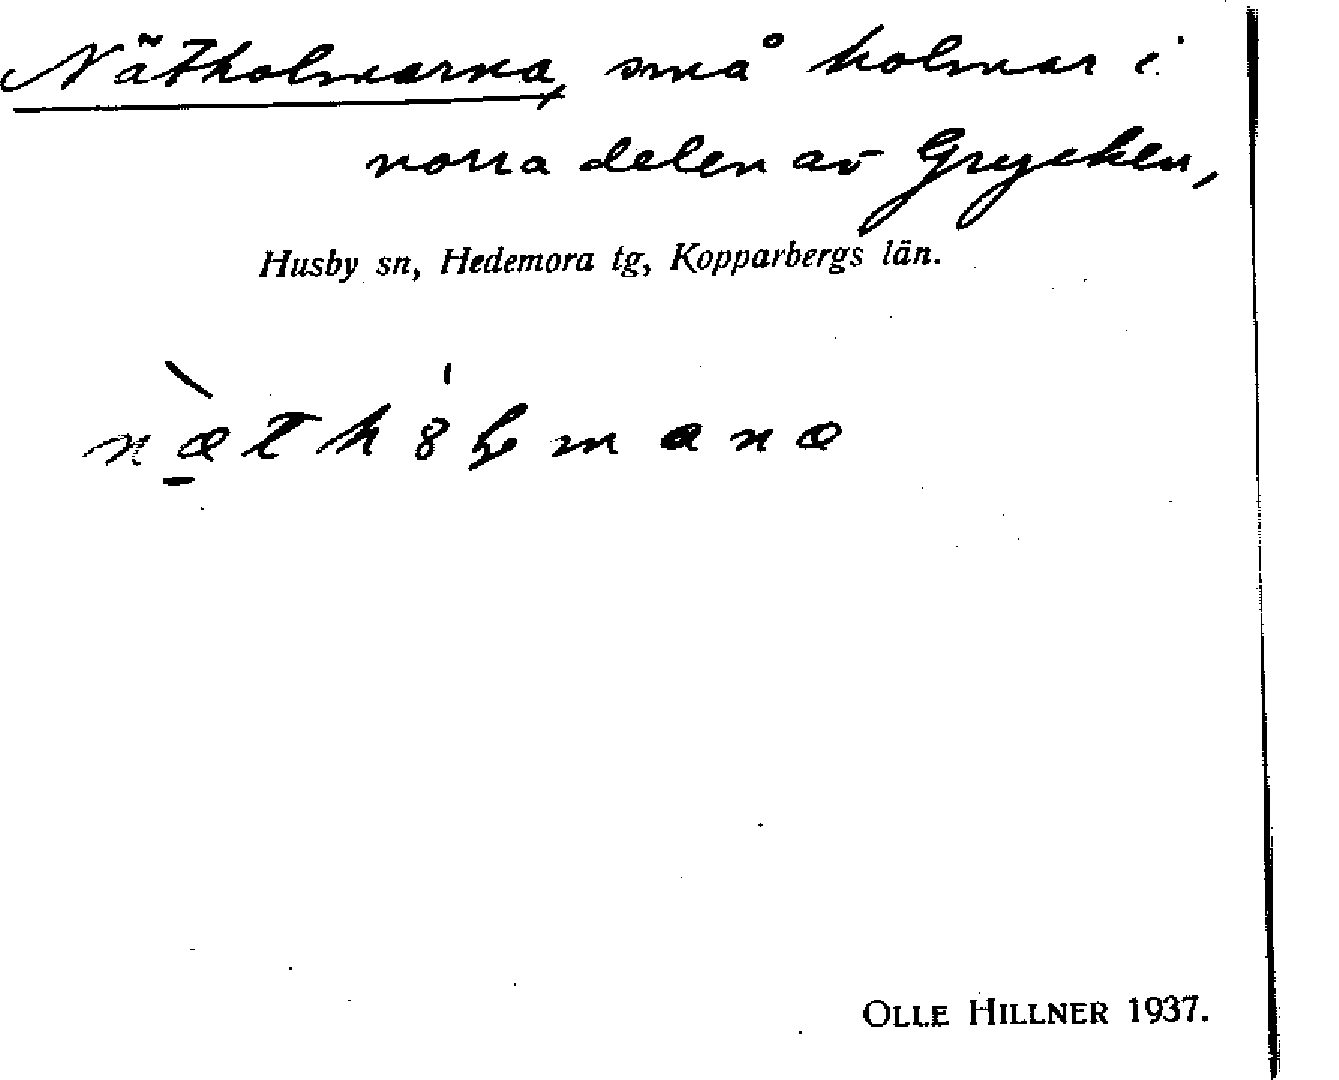 Nätholmarna, små holmar i
norra delen av Grycken,
Husby sn, Hedemora tg, Kopparbergs län.
OLLE HILLNER 1937.